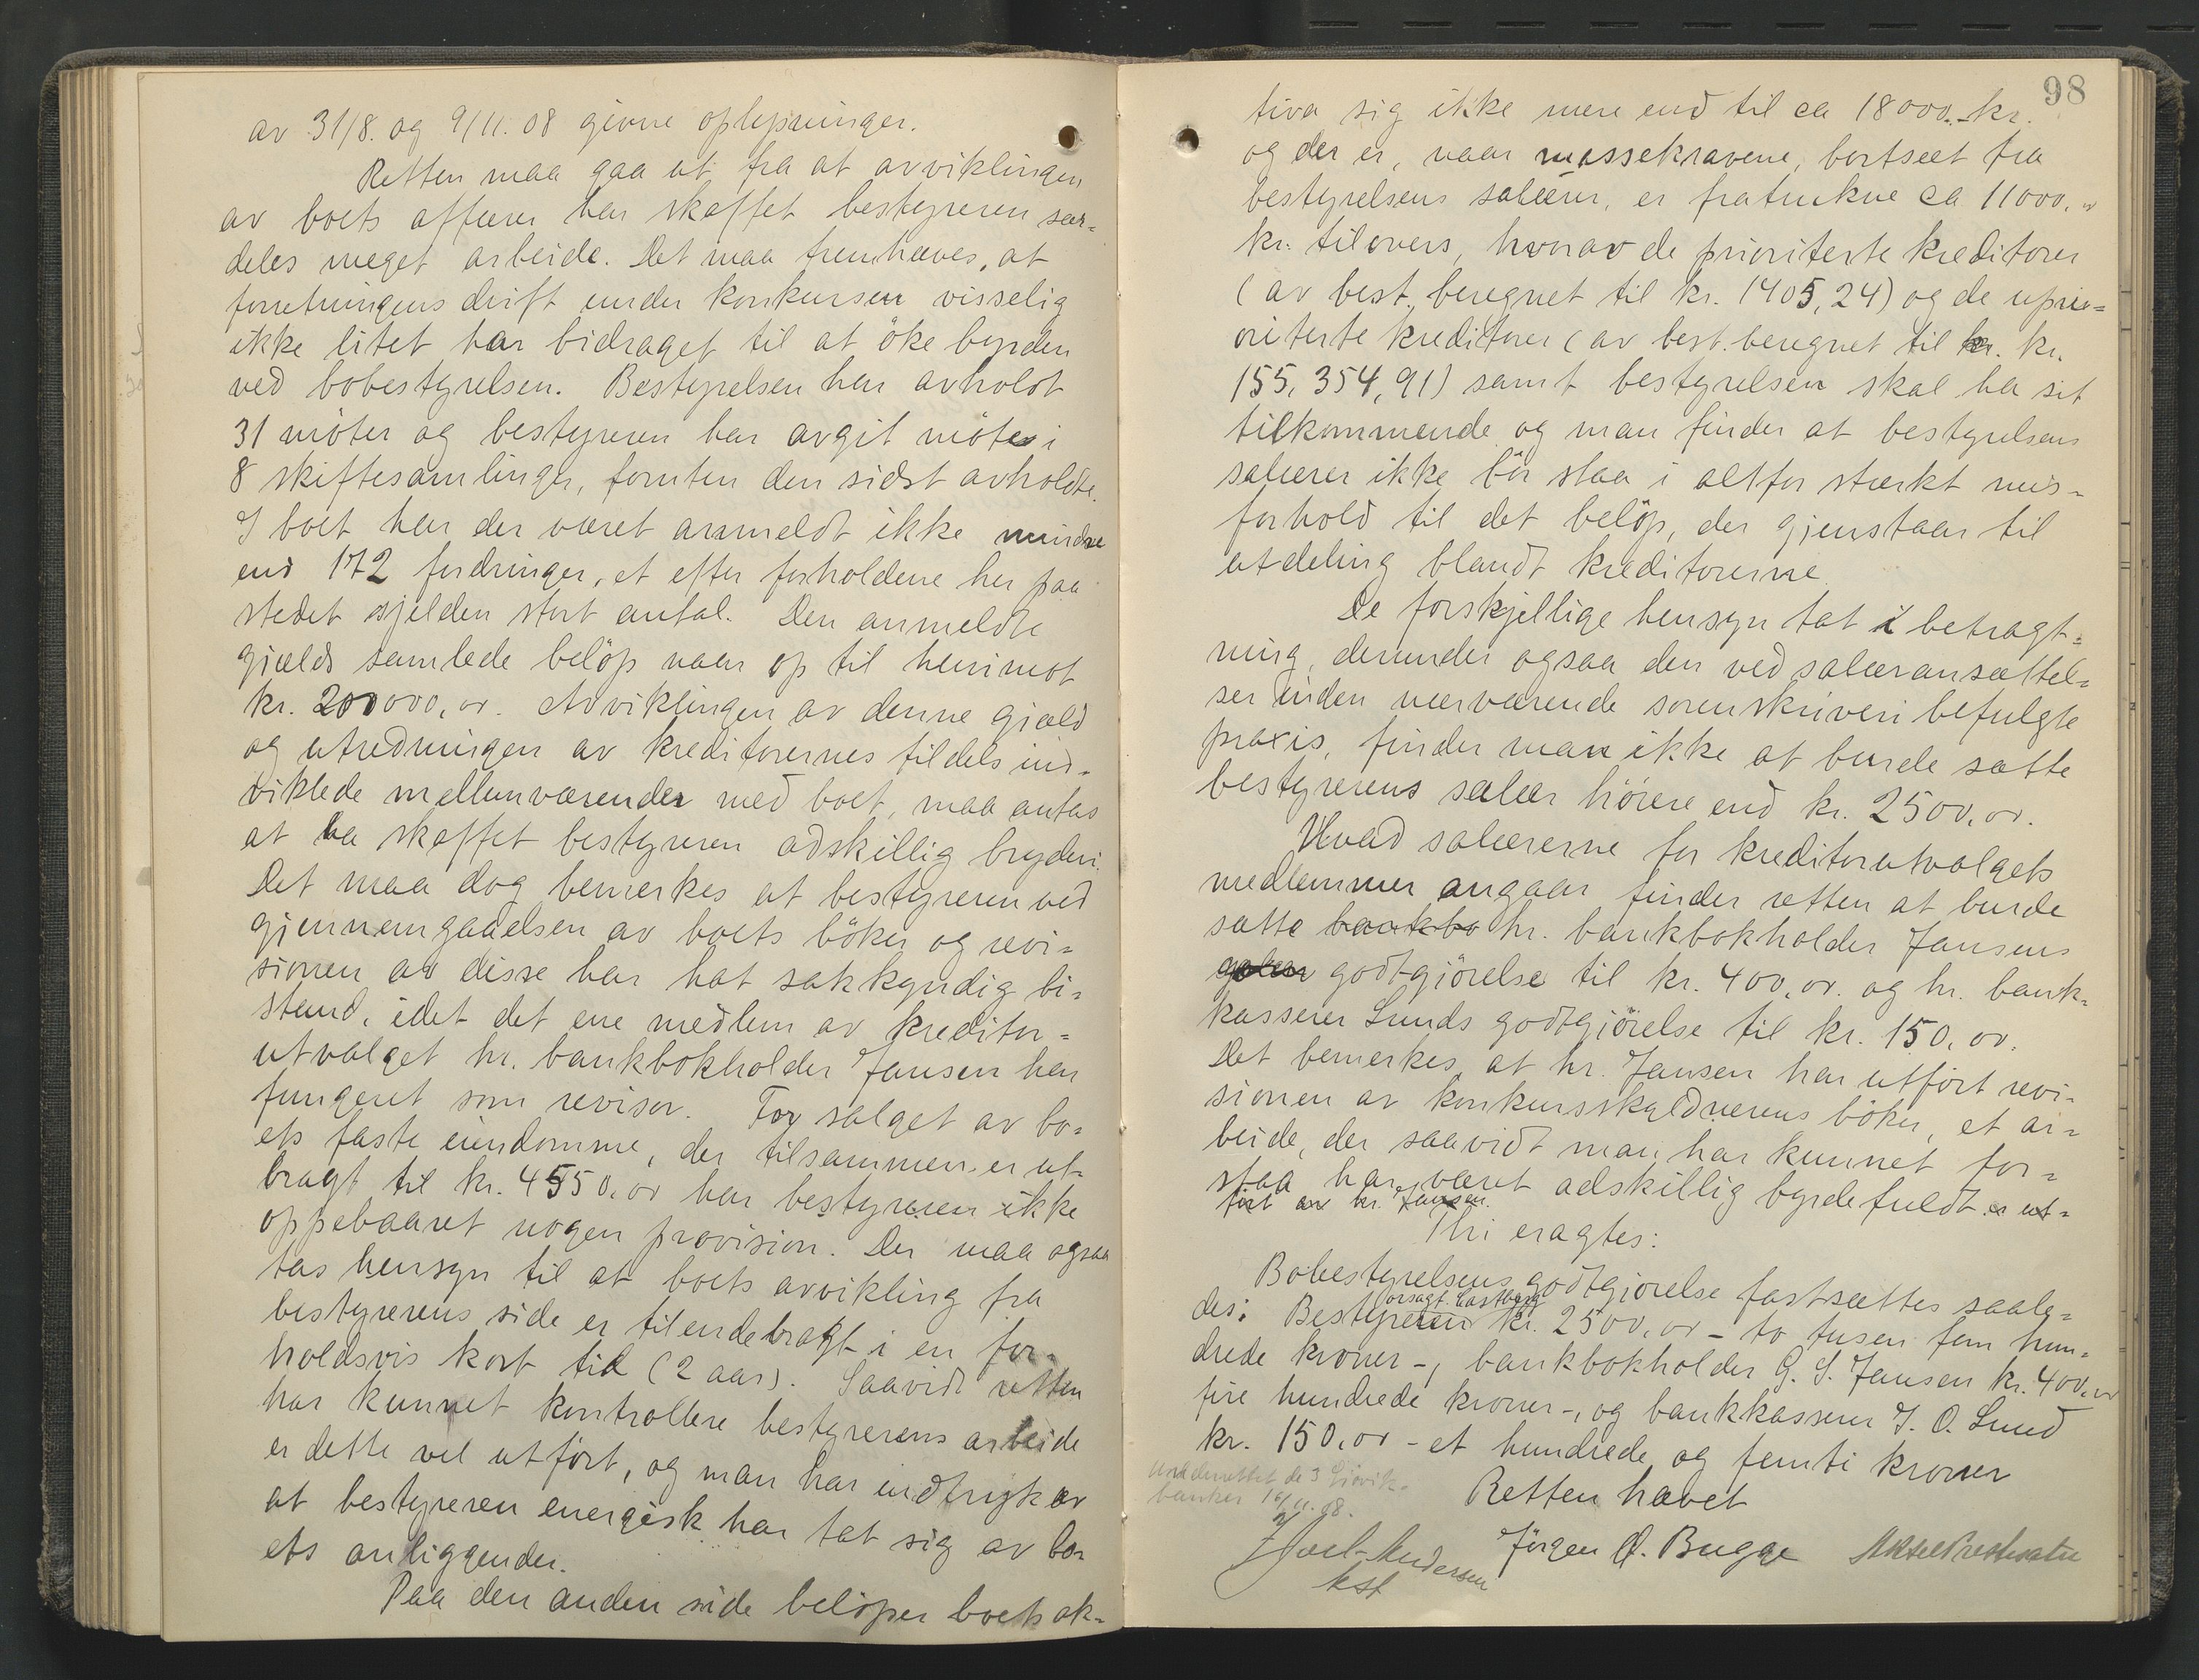 av 31/8. og 9/11. 08 givne oplysninger.
Retten maa gaa ut fra at avviklingen
av boets affærer har skaffet bestyreren sær-
deles meget arbeide. Det maa fremhæves, at
forretningens drift under konkursen visselig
ikke litet har bidraget til at öke byrden
ved bobestyrelsen. Bestyrelsen har avholdt
31 möter og bestyreren har avgit möte i
8 skiftesamlinger, foruten den sidst avholdte.
I boet har der været anmeldt ikke mindre
end 172 fordringer, et efter forholdene her paa
stedet sjelden stort antal. Den anmeldte
gjælds samlede belöp naar op til henimot
kr. 200000,00. Avviklingen av denne gjæld
og utredningen av kreditorernes tildels ind-
viklede mellemværender med boet, maa antas
at ha skaffet bestyreren adskillig bryderi.
Det maa dog bemerkes at bestyreren ved
gjennemgaaelsen av boets böker og revi-
sionen av disse har hat sakkyndig bi-
stand, idet det ene medlem av kreditor-
utvalget hr. bankbokholder Jansen har
fungeret som revisor. For salget av bo-
ets faste eiendomme, der tilsammen er ut-
bragt til kr. 4550,00 har bestyreren ikke
oppebaaret nogen provision. Der maa ogsaa
tas hensyn til at boets avvikling fra
bestyrerens side er tilendebragt i en for-
holdsvis kort tid (2 aar). Saavidt retten
har kunnet kontrollere bestyrerens arbeide
er dette vel utfört, og man har indtryk av
at bestyreren energisk har tat sig av bo-
ets anliggender.
Paa den anden side belöper boets ak-
98
tiva sig ikke mere end til ca 18000.- kr.
og der er, naar massekravene, bortseet fra
bestyrelsens salærer, er fratrukne ca 11000,00
kr. tilovers, hvorav de prioriterte kreditorer
(av best. beregnet til kr. 1405,24) og de upri-
oriterte kreditorer (av best. beregnet til kr. kr.
155,354,91) samt bestyrelsen skal ha sit
tilkommende og man finder at bestyrelsens
salærer ikke bör staa i altfor stærkt mis-
forhold til det belöp, der gjenstaar til
utdeling blandt kreditorerne.
De forskjellige hensyn tat i betragt-
ning, derunder ogsaa den ved salæransættel-
ser inden nærværende sorenskriveri befulgte
praxis, finder man ikke at burde sætte
bestyrerens salær höiere end kr. 2500,00.
Hvad salærerne for kreditorutvalgets
medlemmer angaar finder retten at burde
sætte bankbo hr. bankbokholder Jansens
godtgjörelse til kr. 400,00. og hr. bank-
kasserer Lunds godtgjörelse til kr. 150,00.
Det bemerkes, at hr. Jansen har utfört revi-
sionen av konkursskyldnerens böker, et ar-
beide, der saavidt man har kunnet for-
staa har været adskillig byrdefuldt er ut-
fört av hr. Jansen.
Thi eragtes:
Bobestyrelsens godtgjörelse fastsættes saale-
des: Bestyreren orsagf. Castberg kr. 2500,00 - to tusen fem hun-
drede kroner -, bankbokholder G. S. Jansen kr. 400,00
fire hundrede kroner -, og bankkasserer J. O. Lund
kr. 150,00 - et hundrede og femti kroner
Retten hævet
Underrettet de 3 Gjövik-
banker 16/11.08.
Jörgen Ø. Bugge
Joel Andersen
kst